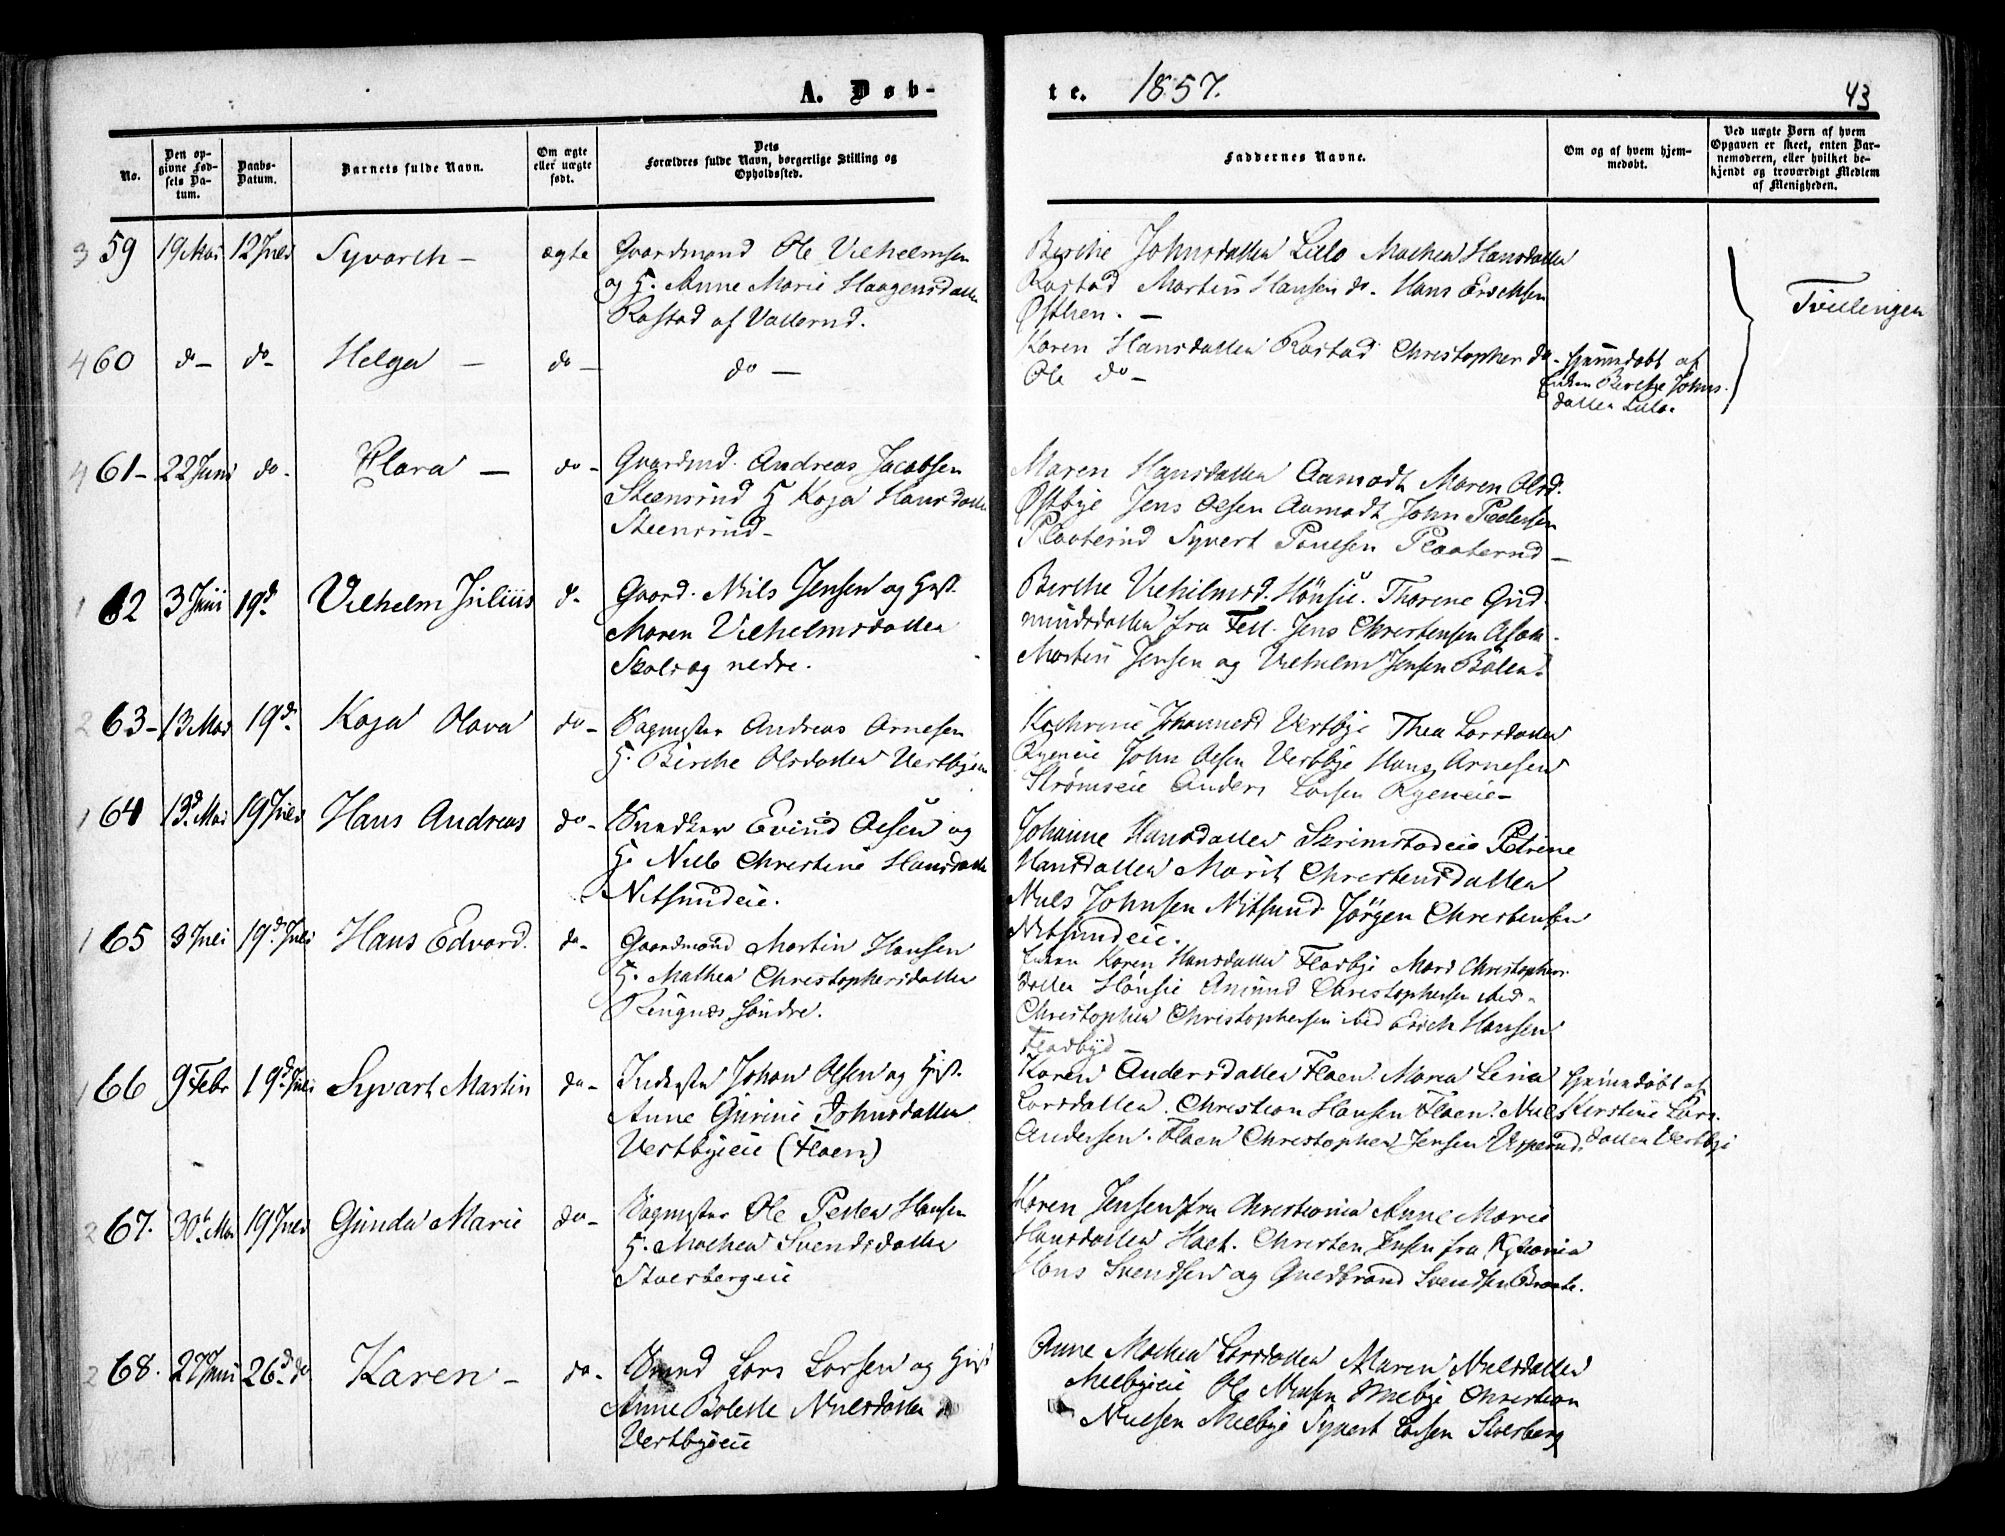 A. Døb-
te. 1857.
43
No.
Den op-
givne Fød-
sels Da-
tum.
Daabs-
Datum.
Barnets fulde Navn.
Om ægte
eller uægte
født.
Dets
Forældres fulde Navn, borgerlige Stilling og
Opholdssted.
Faddernes Navne.
Om og af hvem hjem-
medøbt.
Ved uægte Børn af hvem
Opgaven er skeet, enten Bar-
nemoderen, eller hvilket be-
kjendt og troværdigt Medlem
af Menigheden.
3 59 19 Mai 12 Juli Syvarth – ægte Gaardmand Ole Vilhelmsen
og H. Anne Marie Haagensdatter
Rastad af Vallerud.
Berthe Johnsdatter Lillo Mathea Hansdatter
Rastad Martin Hansen do. Hans Erichsen
Østhen. –
Tvillinger
4 60 do – do – Helga – do – do –
Karen Hansdatter Rastad Christopher do –
Ole do –
Hjemdøbt af
Enken Berthe Johns-
datter Lillo.
4 61 – 22 Juni do – Clara – do – Gaardmd. Andreas Jacobsen
Steensrud H Kaja Hansdatter
Steensrud –
Maren Hansdatter Aamodt Maren Olsd.
Østbye Jens Olsen Aamodt John Pedersen
Plaaterud Syvert Poulsen Plaaterud –
1 62 3 Juni 19d. Vilhelm Julius d– Gaard. Niels Jensen og Hust.
Maren Vilhelmsdatter
Skolsag nedre.
Berthe Vilhelmsd. Hönsie. Thorine Gud-
mundsdatter fra Fett. Jens Christensen
Martin Jensen og Vilhelm Jensen Bölen.
2 63 – 13 Mai 19d. Kaja Olava do – Sagmester Andreas Arnesen
H. Birthe Olsdatter Vestbyeie
Kathrine Johannesd Vestbye Thea Larsdatter
Ryeneie John Olsen Vestbye Hans Arnesen
Strömseie Anders Larsen Ryeneie –
1 64 13d. Mai 19 Juli Hans Andreas do – Snedker Evind Olsen og
H. Nille Christine Hansdatter
Nitsundeie.
Johanne Hansdatter Skrimstadeie Petrine
Hansdatter Marit Christensdatter
Niels Johnsen Nitsund Jörgen Christensen
Nitsundeie.
1 65 3 Juli 19d. Juli Hans Edvard. do – Gaardmand Martin Hansen
H. Mathea Christophersdatter
Ringnæs söndre.
Enken Karen Hansdatter Fladbye Mari Christophers-
datter Hönsie Amund Christophersen
Christopher Christophersen ibid Erich Hansen
Fladbye –
1 66 9 Febr 19d. Juli Syvart Martin do – Inderste Johan Olsen og Hust.
Anne Gurine Johnsdatter
Vestbyeie (Flaen)
Karen Andersdatter Flaen Maria Lina
Larsdatter. Christian Hansen Flaen. Niels
Andersen. Flaen Christopher Jensen
Hjemdøbt af
Kirstine Lars-
datter Vestbye
2 67. 30te Mai 19 Juli Gunda Marie do – Sagmester Ole Peder Hansen
H. Mathea Svendsdatter
Stoerbergeie
Karen Jensen fra Christiania Anne Marie
Hansdatter Christen Jensen fra
Hans Svendsen og Guldbrand Svendsen Braate.
2 68. 27 Juni 26d. do Karen – do – Lars Larsen og Hust
Anne Bolette Nielsdatter
Vestbyeie
Anne Mathea Larsdatter Maren Nielsdatter
Melbyeie Ole Nielsen Melbye Christian
Nielsen Melbye Syvert Larsen Stoerberg